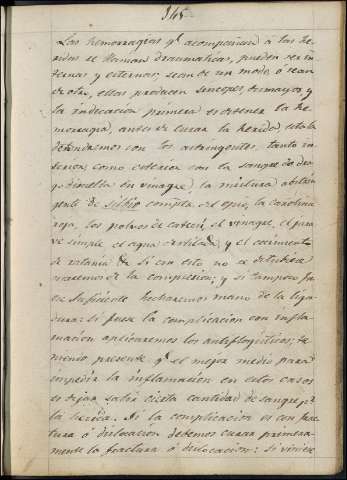 345
Las hemorragias q.e acompañan á las he-
ridas se llaman traumaticas, pueden ser in-
ternas y externas; sean de un modo, ó sean
de otro, ellas producen sincopes, primayor y
la indicacion primera es detener la he-
morragia, antes de curar la herida, esta la
detendremos con los astringentes, tanto in-
teriores, como exteriores con la sangre de dra-
go disuelta en vinagre, la mixtura astrin
gente de compta del opio, la
roja, los polvos de catecú, el vinagre, el jara
ve simple, el agua destilada, y el cocimiento
de ratania. Si con esto no se detubiera
usaremos de la compresion; y si tampoco fu
ese suficiente hecharemos mano de la liga-
dura: si fuese la complicacion con infla-
macion aplicaremos los antiflogisticos; te-
niendo presente q.e el mejor medio para
impedir la inflamacion en estos casos
es dejar salir cierta cantidad de sangre p.r
la herida. Si la complicacion es con frac
tura ó dislocacion debemos curar primera-
mente la fractura ó dislocacion: si viniese